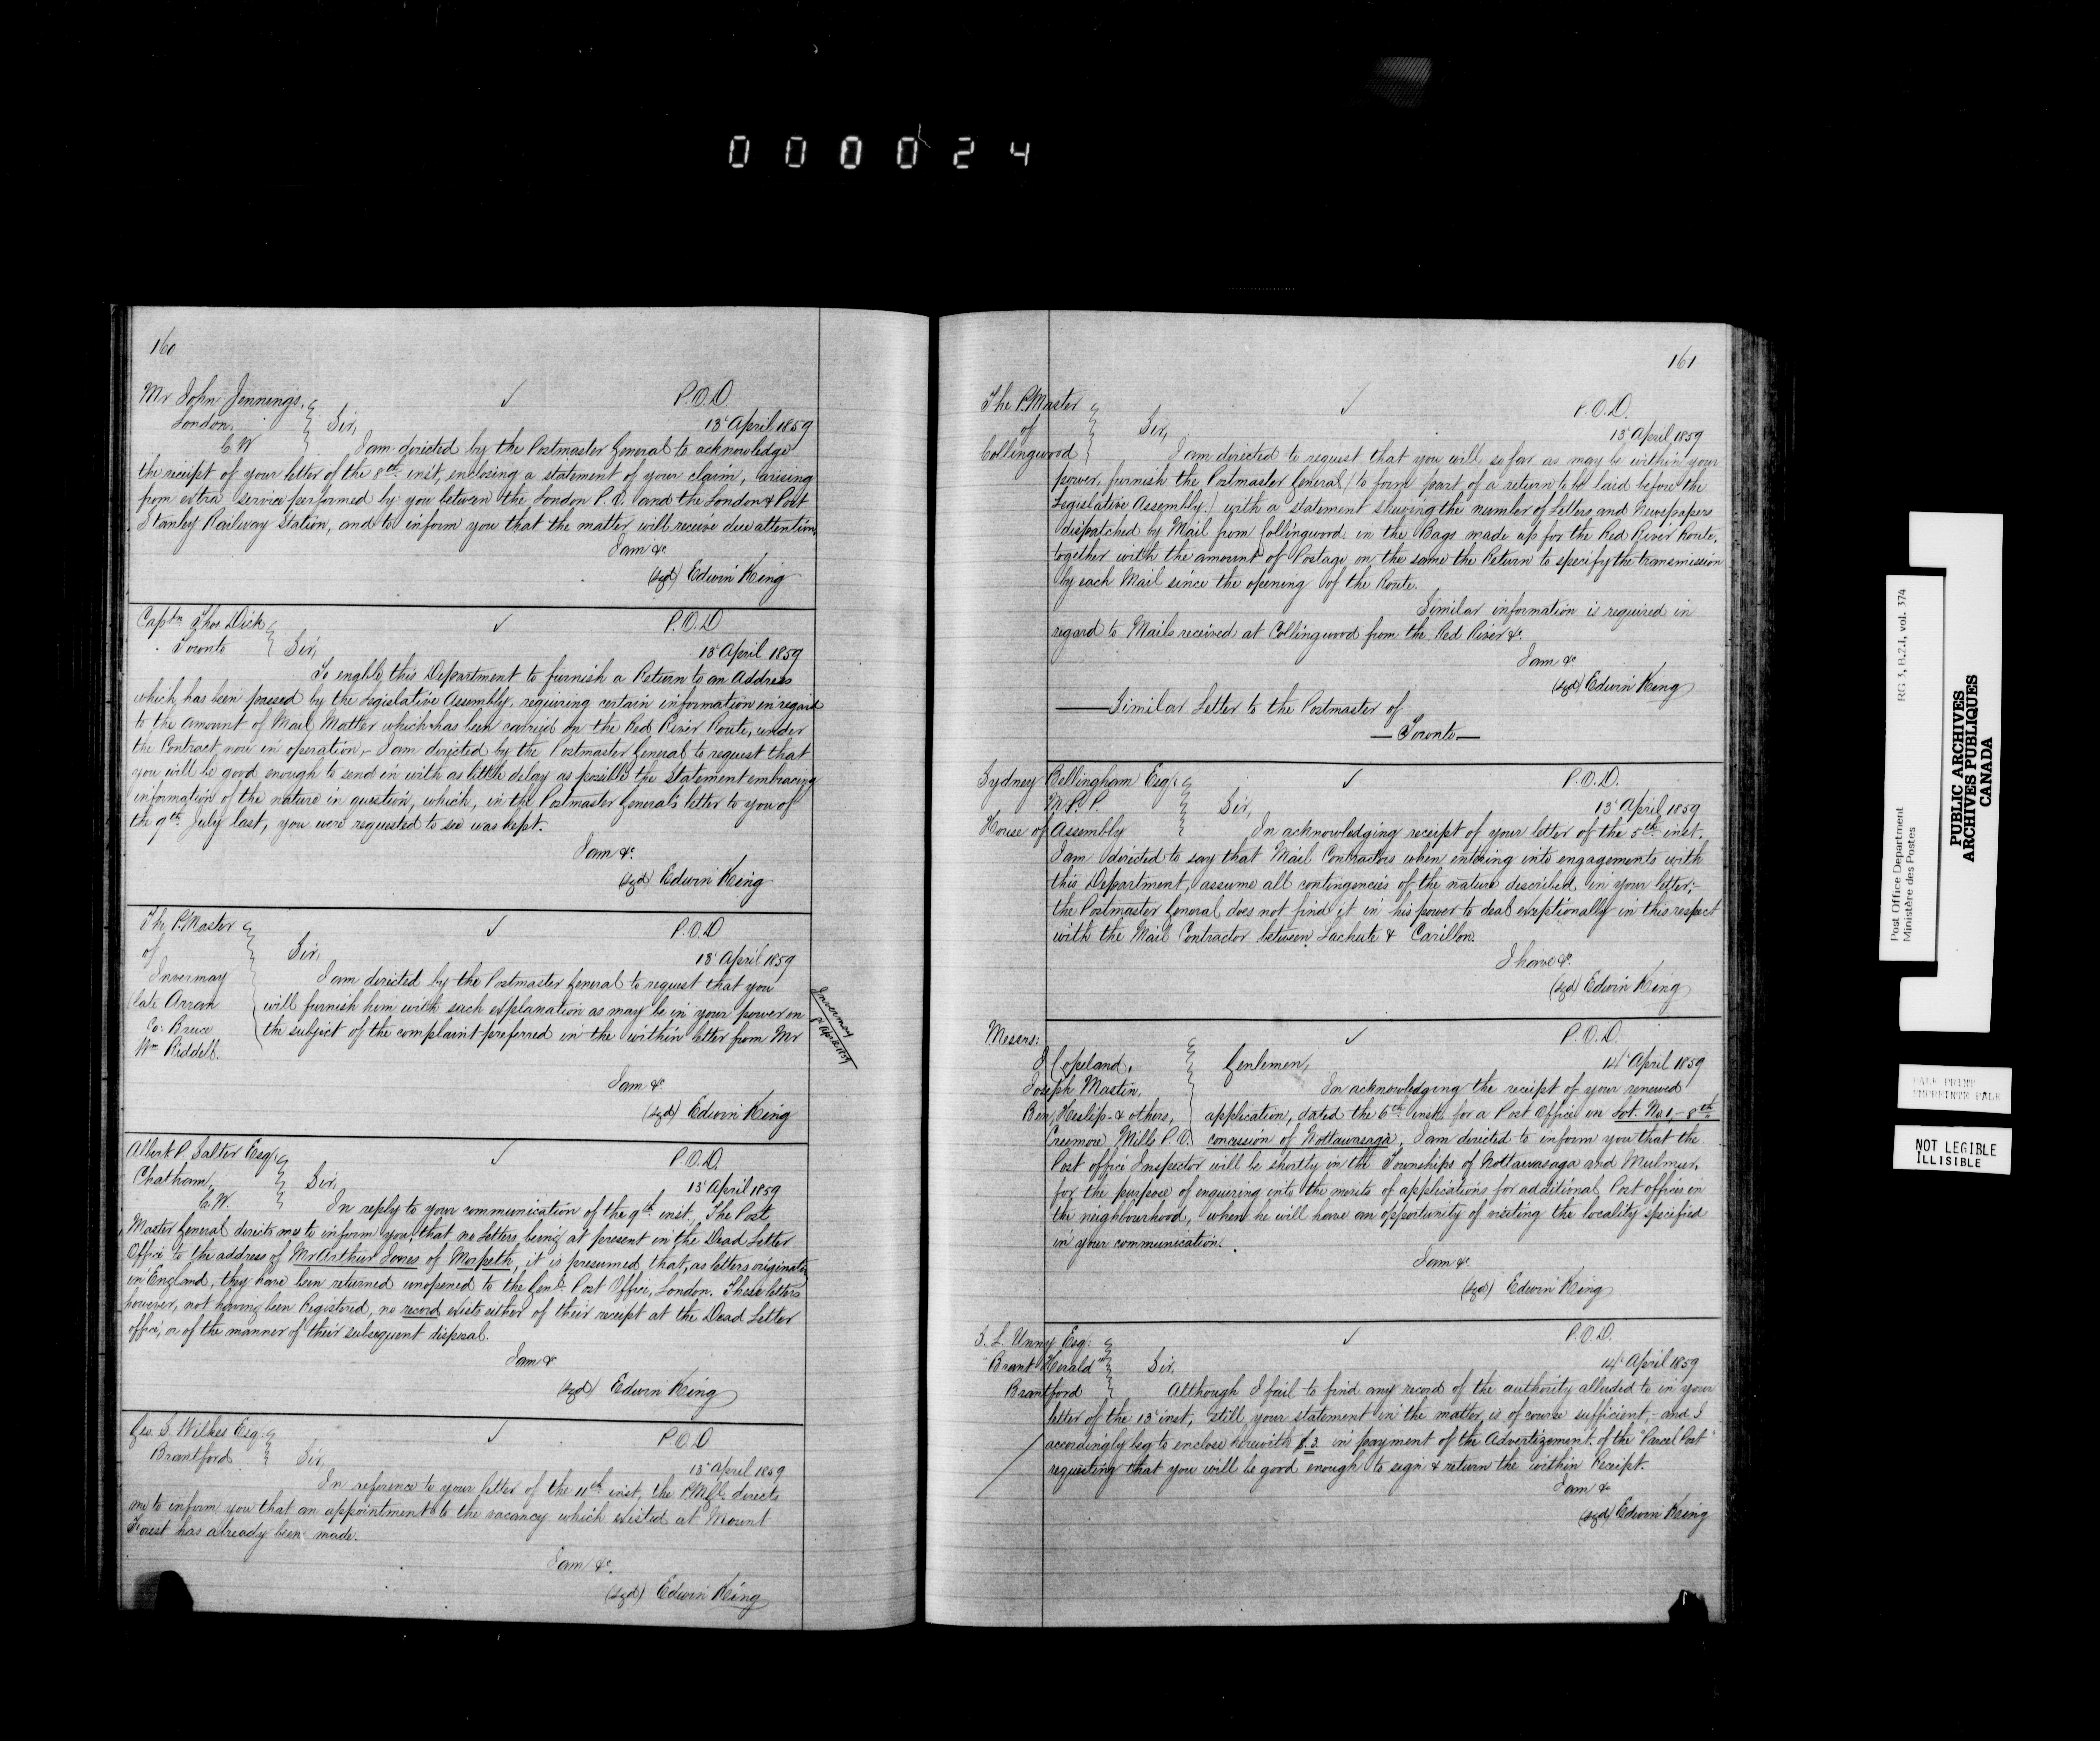 000024
160
Mr John Jennings.
London.
C.W
P.O.D.
13 April 1859
Sir,
I am directed by the Postmaster General to acknowledge
the receipt of your letter of the 8th inst, enclosing a statement of your claim, arising
from extra service performed by you between the London P.O. and the London & Port
Stanley Railway Station, and to inform you that the matter will receive due attention.
I am &c
(sgd) Edwin King
Captn Thos Dick
Toronto
P.O.D
13 April 1859
Sir,
To enable this Department to furnish a Return to an Address
which has been passed by the Legislative Assembly, requiring certain information in regard
to the amount of Mail Matter which has been carried on the Red River Route, under
the Contract now in operation,- I am directed by the Postmaster General to request that
you will be good enough to send in with as little delay as possible the Statement embracing
information of the nature in question, which, in the Postmaster General's letter to you of
the 9th July last, you were requested to see was kept.
I am &c.
(sgd) Edwin King
The P.Master
of
Invermay
late Arran
Co: Bruce
Wm Riddell.
P.O.D
13 April 1859
Sir,
I am directed by the Postmaster General to request that you
will furnish him with such explanation as may be in your power on
the subject of the complaint preferred in the within letter from Mr
Invermay
I am &c.
(sgd) Edwin King
Albert P. Salter Esq.
Chatham,
C.W.
P.O.D.
13 April 1859
Sir,
In reply to your communication of the 9th inst, The Post
Master General directs me to inform you, that no letters being at present in the Dead Letter
Office to the address of Mr Arthur Jones of Morpeth, it is presumed that, as letters originating
in England, they have been returned unopened to the Genl. Post Office, London. These letters
however, not having been Registered, no record exists either of their receipt at the Dead Letter
office, or of the manner of their subsequent disposal.
I am &c
(sgd) Edwin King
Geo. S. Wilkes Esq.
Brantford
P.O.D
13 April 1859
Sir,
In reference to your letter of the 11th inst, the P.M.Gl. directs
me to inform you that an appointment to the vacancy which existed at Mount
Forest has already been made.
I am &c.
(sgd) Edwin King
161
The P.Master
of
Collingwood
P.O.D.
13 April 1859
Sir,
I am directed to request that you will so far as may be within your
power, furnish the Postmaster General (to form part of a return to be laid before the
Legislative Assembly) with a statement shewing the number of Letters and Newspapers
dispatched by Mail from Collingwood in the Bags made up for the Red River Route,
together with the amount of Postage on the same the Return to specify the transmission
by each Mail since the opening of the Route.
Similar information is required in
regard to Mails received at Collingwood from the Red River &c.
I am &c
(sgd) Edwin King
Similar Letter to the Postmaster of
—Toronto—
Sydney Bellingham Esq.
M.P.P.
House of Assembly
P.O.D.
13 April 1859
Sir,
In acknowledging receipt of your letter of the 5th inst.
I am directed to say that Mail Contractors when entering into engagements with
this Department, assume all contingencies of the nature described in your letter;-
the Postmaster General does not find it in his power to deal exceptionally in this respect
with the Mail Contractor between Lachute & Carillon.
I have &c.
(sgd) Edwin King
Messrs:
J Copeland,
Joseph Mastin,
Ben, Heslip & others,
Creemore Mills P.O.
P.O.D.
14 April 1859
Genlemen,
In acknowledging the receipt of your renewed
application, dated the 6th inst. for a Post Office on Lot. No. 1,- 8th
concession of Nottawasaga, I am directed to inform you that the
Post office Inspector will be shortly in the Townships of Nottawasaga and Mulmur,
for the purpose of enquiring into the merits of applications for additional Post offices in
the neighbourhood, when he will have an opportunity of visiting the locality specified
in your communication.
I am &c.
(sgd) Edwin King
Esq:
"Brant Herald"
Brantford
P.O.D.
14 April 1859
Sir,
Although I fail to find any record of the authority alluded to in your
letter of the 13 inst, still your statement in the matter is of course sufficient,- and I
accordingly beg to enclose herewith $.3. in payment of the Advertizement of the "Parcel Post"
requesting that you will be good enough to sign & return the within Receipt.
I am &c
(sgd) Edwin King
Post Office Department
Ministère des Postes
RG 3, B.2.1, vol. 374
PUBLIC ARCHIVES
ARCHIVES PUBLIQUES
CANADA
PALE PRINT
EMPREINTE PALE
NOT LEGIBLE
ILLISIBLE